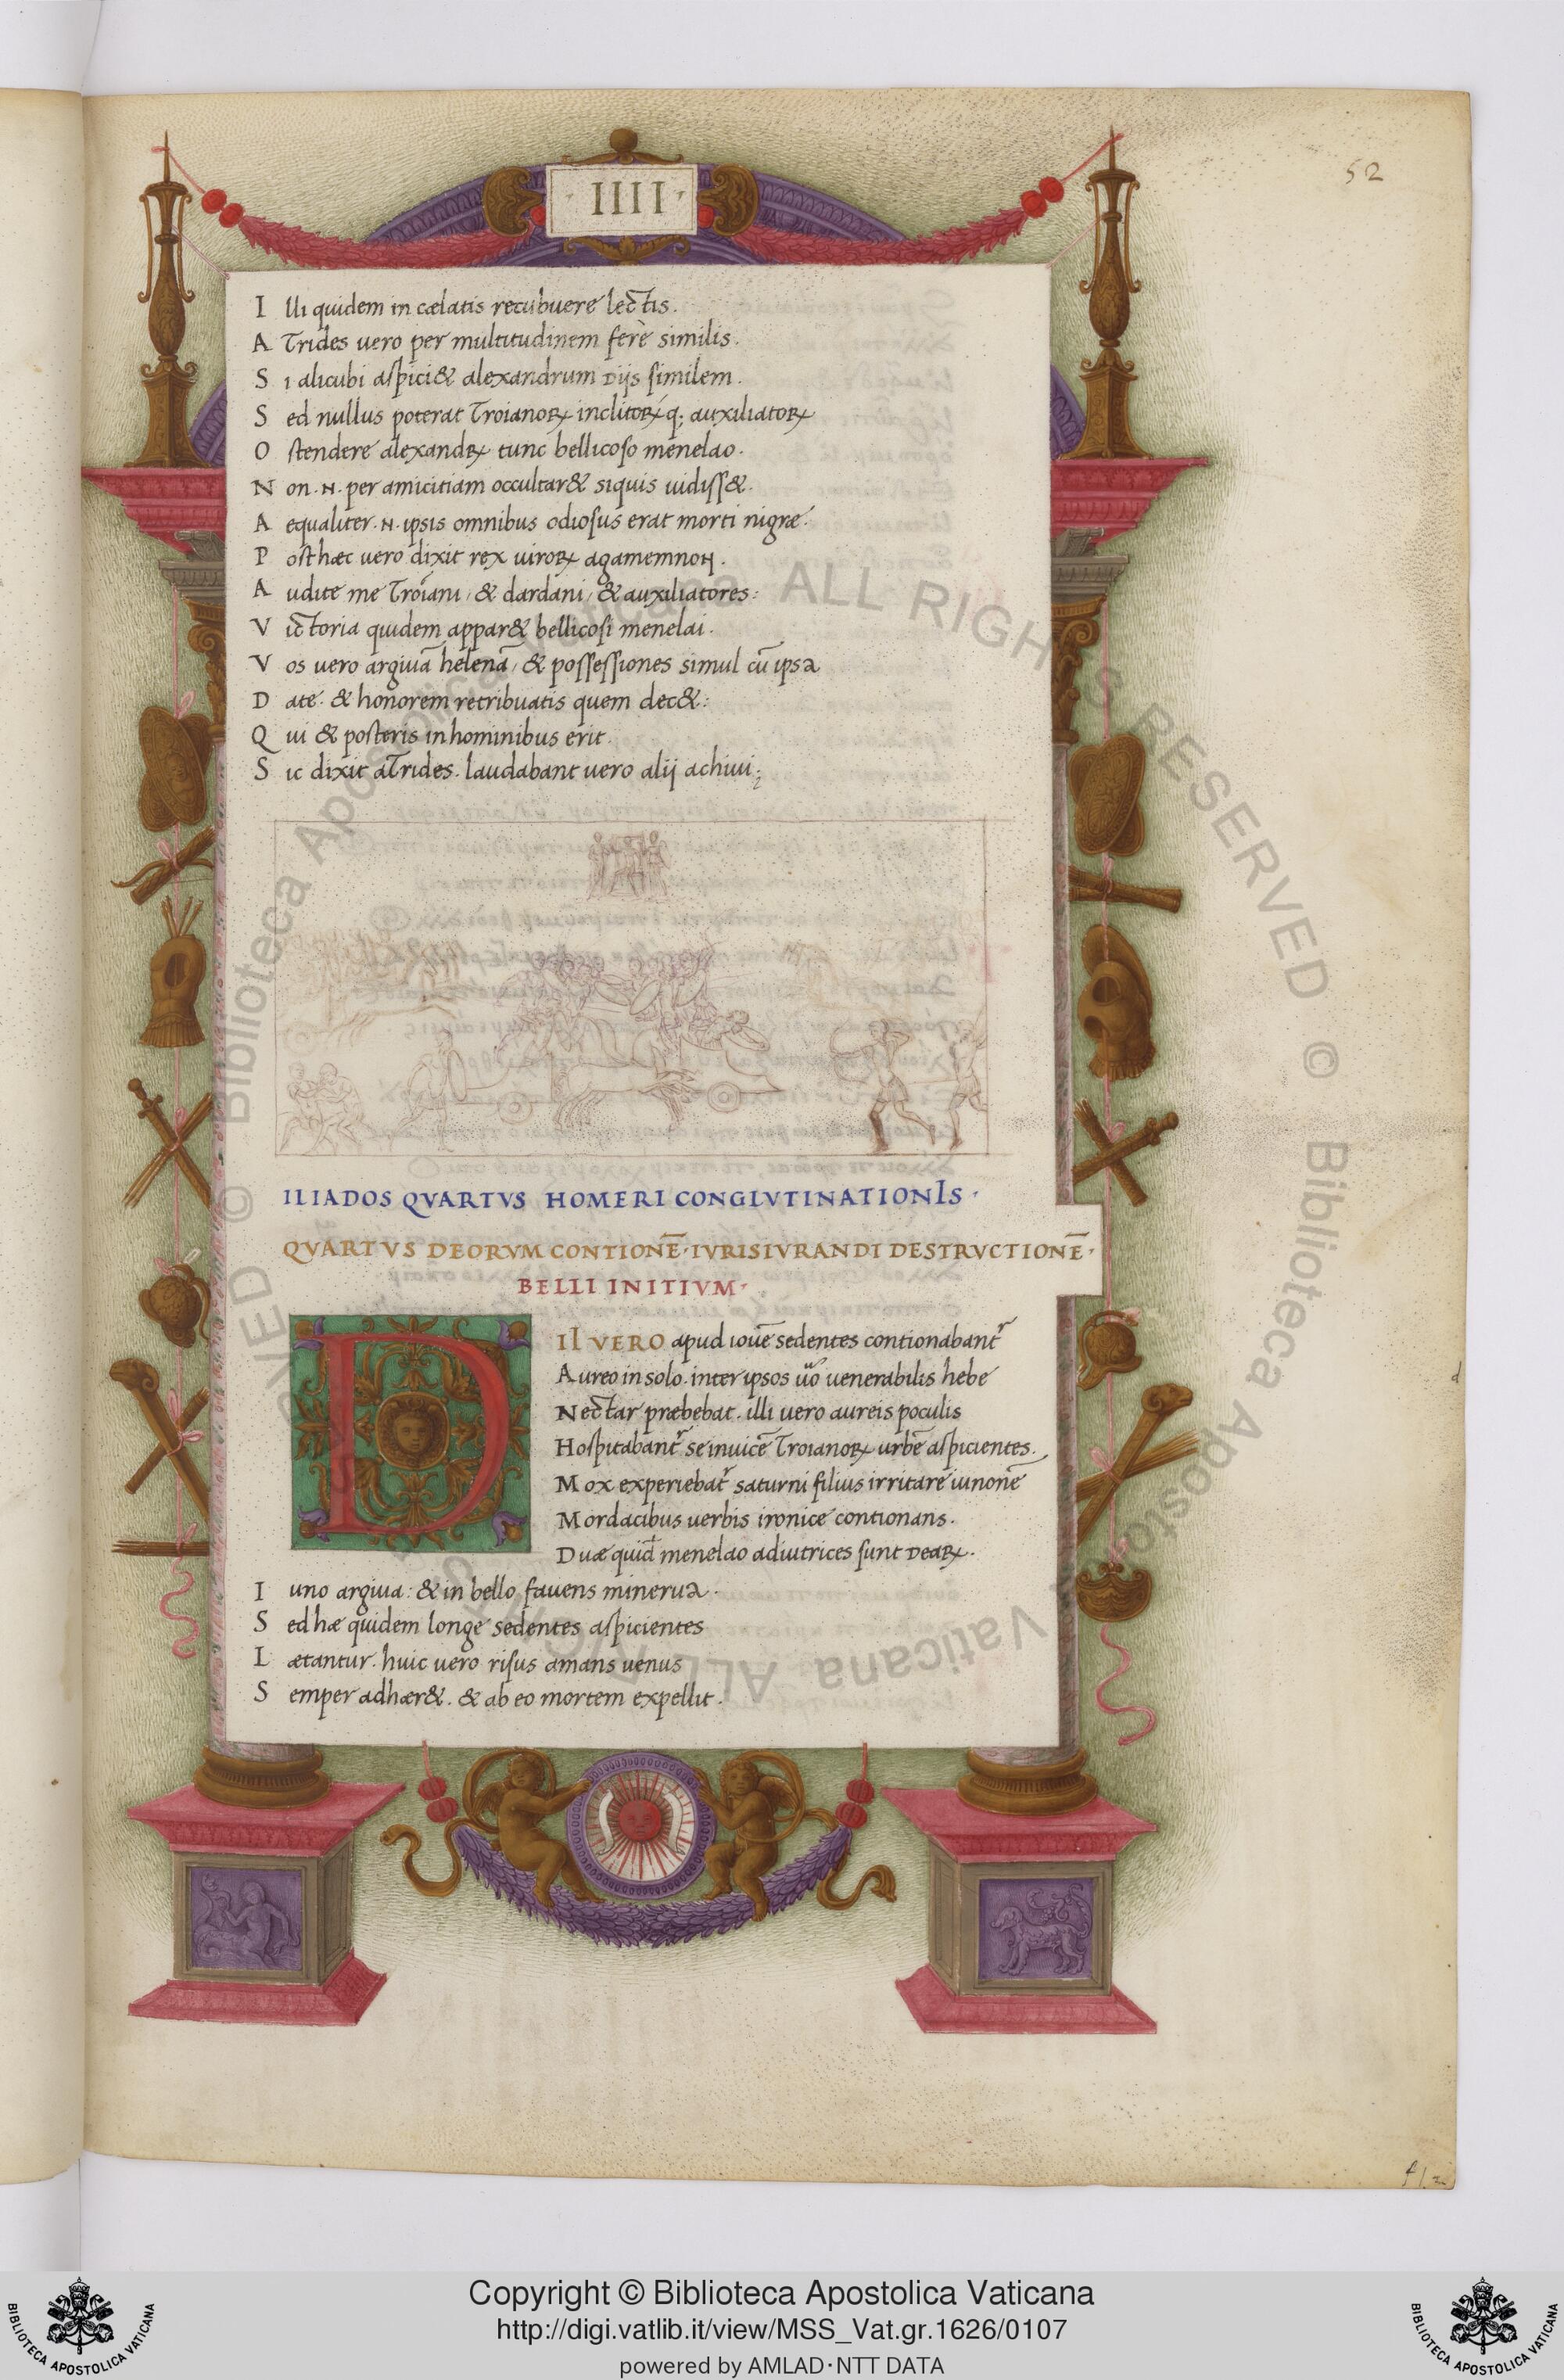 52
· IIII ·
I lli quidem in cælatis recubuere lectis.
A Trides uero per multitudinem ferè similis.
S i alicubi aspici& alexandrum Dijs similem.
S ed nullus poterat Troianoꝝ inclitoꝝq; auxiliatoꝝ
O stendere alexandꝝ tunc bellicoso menelao.
N on .N. per amicitiam occultar& siquis uidiss&.
A equaliter .N. ipsis omnibus odiosus erat morti nigræ.
P ost hæc uero dixit rex uiroꝝ agamemnon.
A udite me Troiani, & dardani, & auxiliatores:
V ictoria quidem appar& bellicosi menelai.
V os uero argiuā helenā, & possessiones simul cū ipsa
D ate. & honorem retribuatis quem dec&:
Q ui & posteris in hominibus erit.
S ic dixit aTrides. laudabant uero alij achiui;
ILIADOS QVARTVS HOMERI CONGLVTINATIONIS ·
QVARTVS DEORVM CONTIONĒ· IVRISIVRANDI DESTRVCTIONĒ·
BELLI INITIVM·
D II VERO apud iouē sedentes contionabantr
Aureo in solo. inter ipsos uo uenerabilis hebe
Nectar præbebat. illi uero aureis poculis
Hospitabantr se inuicē Troianoꝝ urbē aspicientes.
Mox experiebatr saturni filius irritare iunonē
Mordacibus uerbis ironice contionans.
Duæ quid menelao adiutrices sunt Deaꝝ.
I uno argiua: & in bello fauens minerua.
S ed hæ quidem longe sedentes aspicientes
L ætantur. huic uero risus amans uenus
S emper adhær&. & ab eo mortem expellit.
Copyright © Biblioteca Apostolica Vaticana
http://digi.vatlib.it/view/MSS_Vat.gr.1626/0107
powered by AMLAD·NTT DATA
BIBLIOTECA APOSTOLICA VATICANA
BIBLIOTECA APOSTOLICA VATICANA
© Biblioteca Apostolica Vaticana ALL RIGHTS RESERVED © Biblioteca Apostolica Vaticana ALL RIGHTS RESERVED